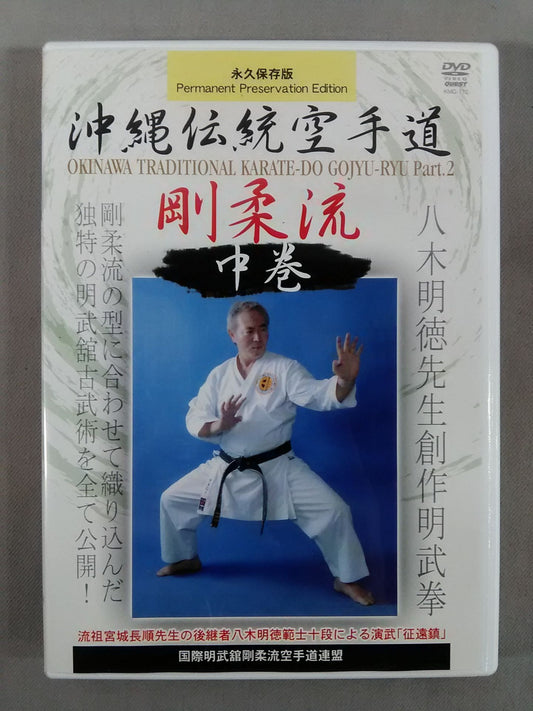 永久保存版
Permanent Preservation Edition
DVD
VIDEO
QUEST
沖縄伝統空手道
OKINAWA TRADITIONAL KARATE-DO GOJYU-RYU Part.2
剛柔流
中巻
八木明徳先生創作明武拳
剛柔流の型に合わせて織り込んだ
独特の明武舘古武術を全て公開！
流祖宮城長順先生の後継者八木明徳範士十段による演武「征遠鎮」
国際明武舘剛柔流空手道連盟